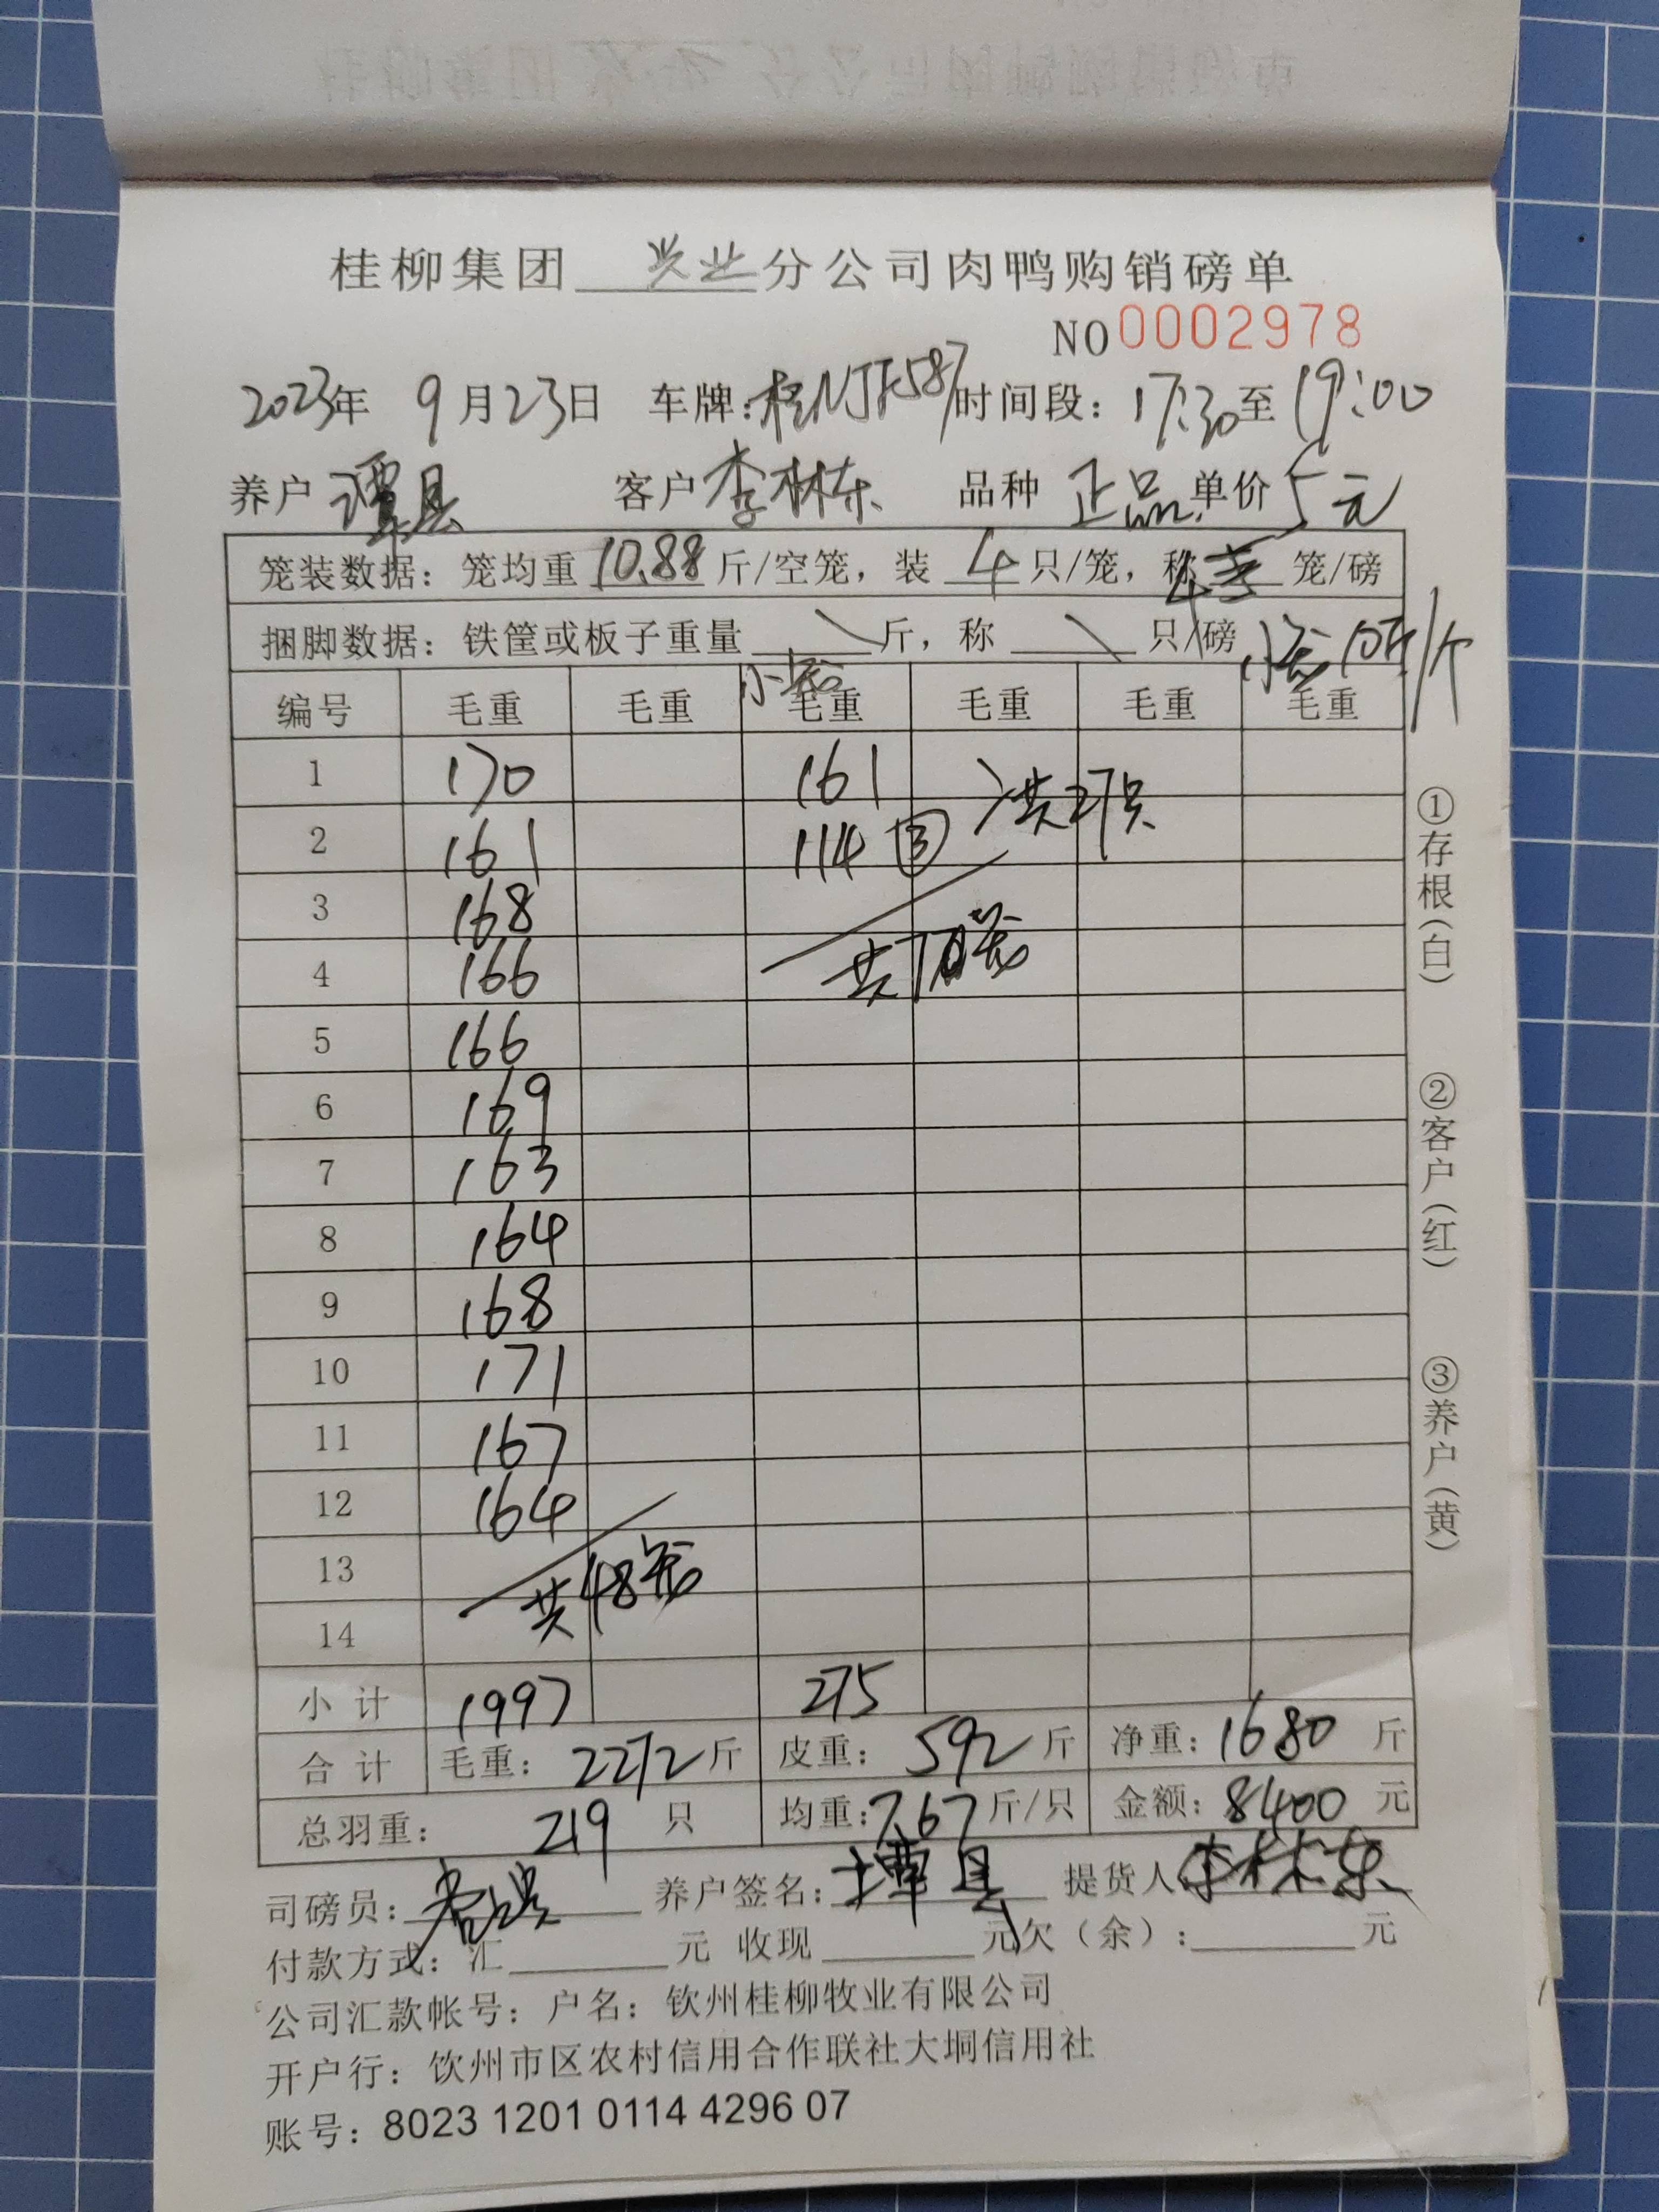 桂柳集团 兴业 分公司肉鸭购销磅单
NO 0002978
2023年 9月23日 车牌：桂NJF587 时间段：17:30至19:00
养户 谭县 客户 李林东 品种 正品 单价 5元
笼装数据：笼均重 10.88 斤/空笼，装 4 只/笼，称 4 笼/磅
捆脚数据：铁筐或板子重量 \ 斤，称 \ 只/磅 小笼10斤/个
小笼
编号 毛重 毛重 毛重 毛重 毛重 毛重
1 170 161
2 161 114 ③ 共27只
3 168
4 166 共7笼
5 166
6 169
7 163
8 164
9 168
10 171
11 167
12 164
13 共48笼
14
小计 1997 275
合计 毛重：2272斤 皮重：592斤 净重：1680斤
总羽重：219 只 均重：7.67斤/只 金额：8400元
司磅员： 养户签名：谭县 提货人 李林东
付款方式：汇 元 收现 元欠（余）： 元
公司汇款帐号：户名：钦州桂柳牧业有限公司
开户行：饮州市区农村信用合作联社大垌信用社
账号：8023 1201 0114 4296 07
①存根（白）
②客户（红）
③养户（黄）